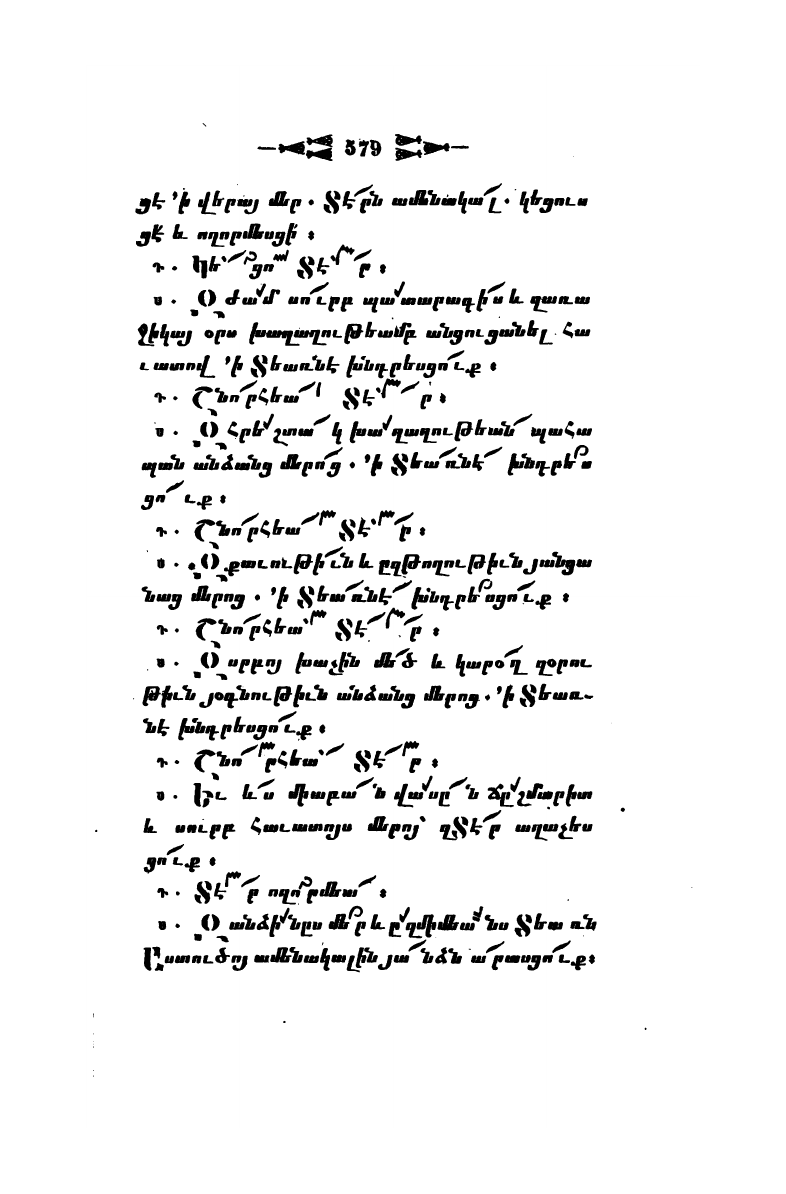 579
ցէ ՚ի վերայ մեր . Տէրն ամենակալ . կեցուս
ցէ և ողորմեսցի ։
դ . Կեցո՛ Տէր ։
ս . Զժամ սուրբ պատարագիս և զառա
ջիկայ օրս խաղաղութեամբ անցուցանել Հա
ւատով ՚ի Տեառնէ խնդրեսցուք ։
դ . ՇնորՀեա Տէր ։
ս . ԶՀրեշտակ խաղաղութեան պաՀա
պան անձանց մերոց . ՚ի Տեառնէ խնդրես
ցուք ։
դ . ՇնորՀեա Տէր ։
ս . Զքաւութիւն և ըզթողութիւն յանցա
նաց մերոց . ՚ի Տեառնէ խնդրեսցուք ։
դ . ՇնորՀեա Տէր ։
ս . Զսրբոյ խաչին մեծ և կարօղ զօրու
թիւն յօգնութիւն անձանց մերոց . ՚ի Տեառ֊
նէ խնդրեսցուք ։
դ . ՇնորՀեա Տէր ։
ս . Եւ ևս միաբան վասըն ճըշմարիտ
և սուրբ Հաւատոյս մերոյ՝ զՏէր աղաչես
ցուք ։
դ . Տէր ողորմեա ։
ս . Զանձինըս մեր և ըզմիմեանս Տեառն
Աստուծոյ ամենակալին յանձն արասցուք ։